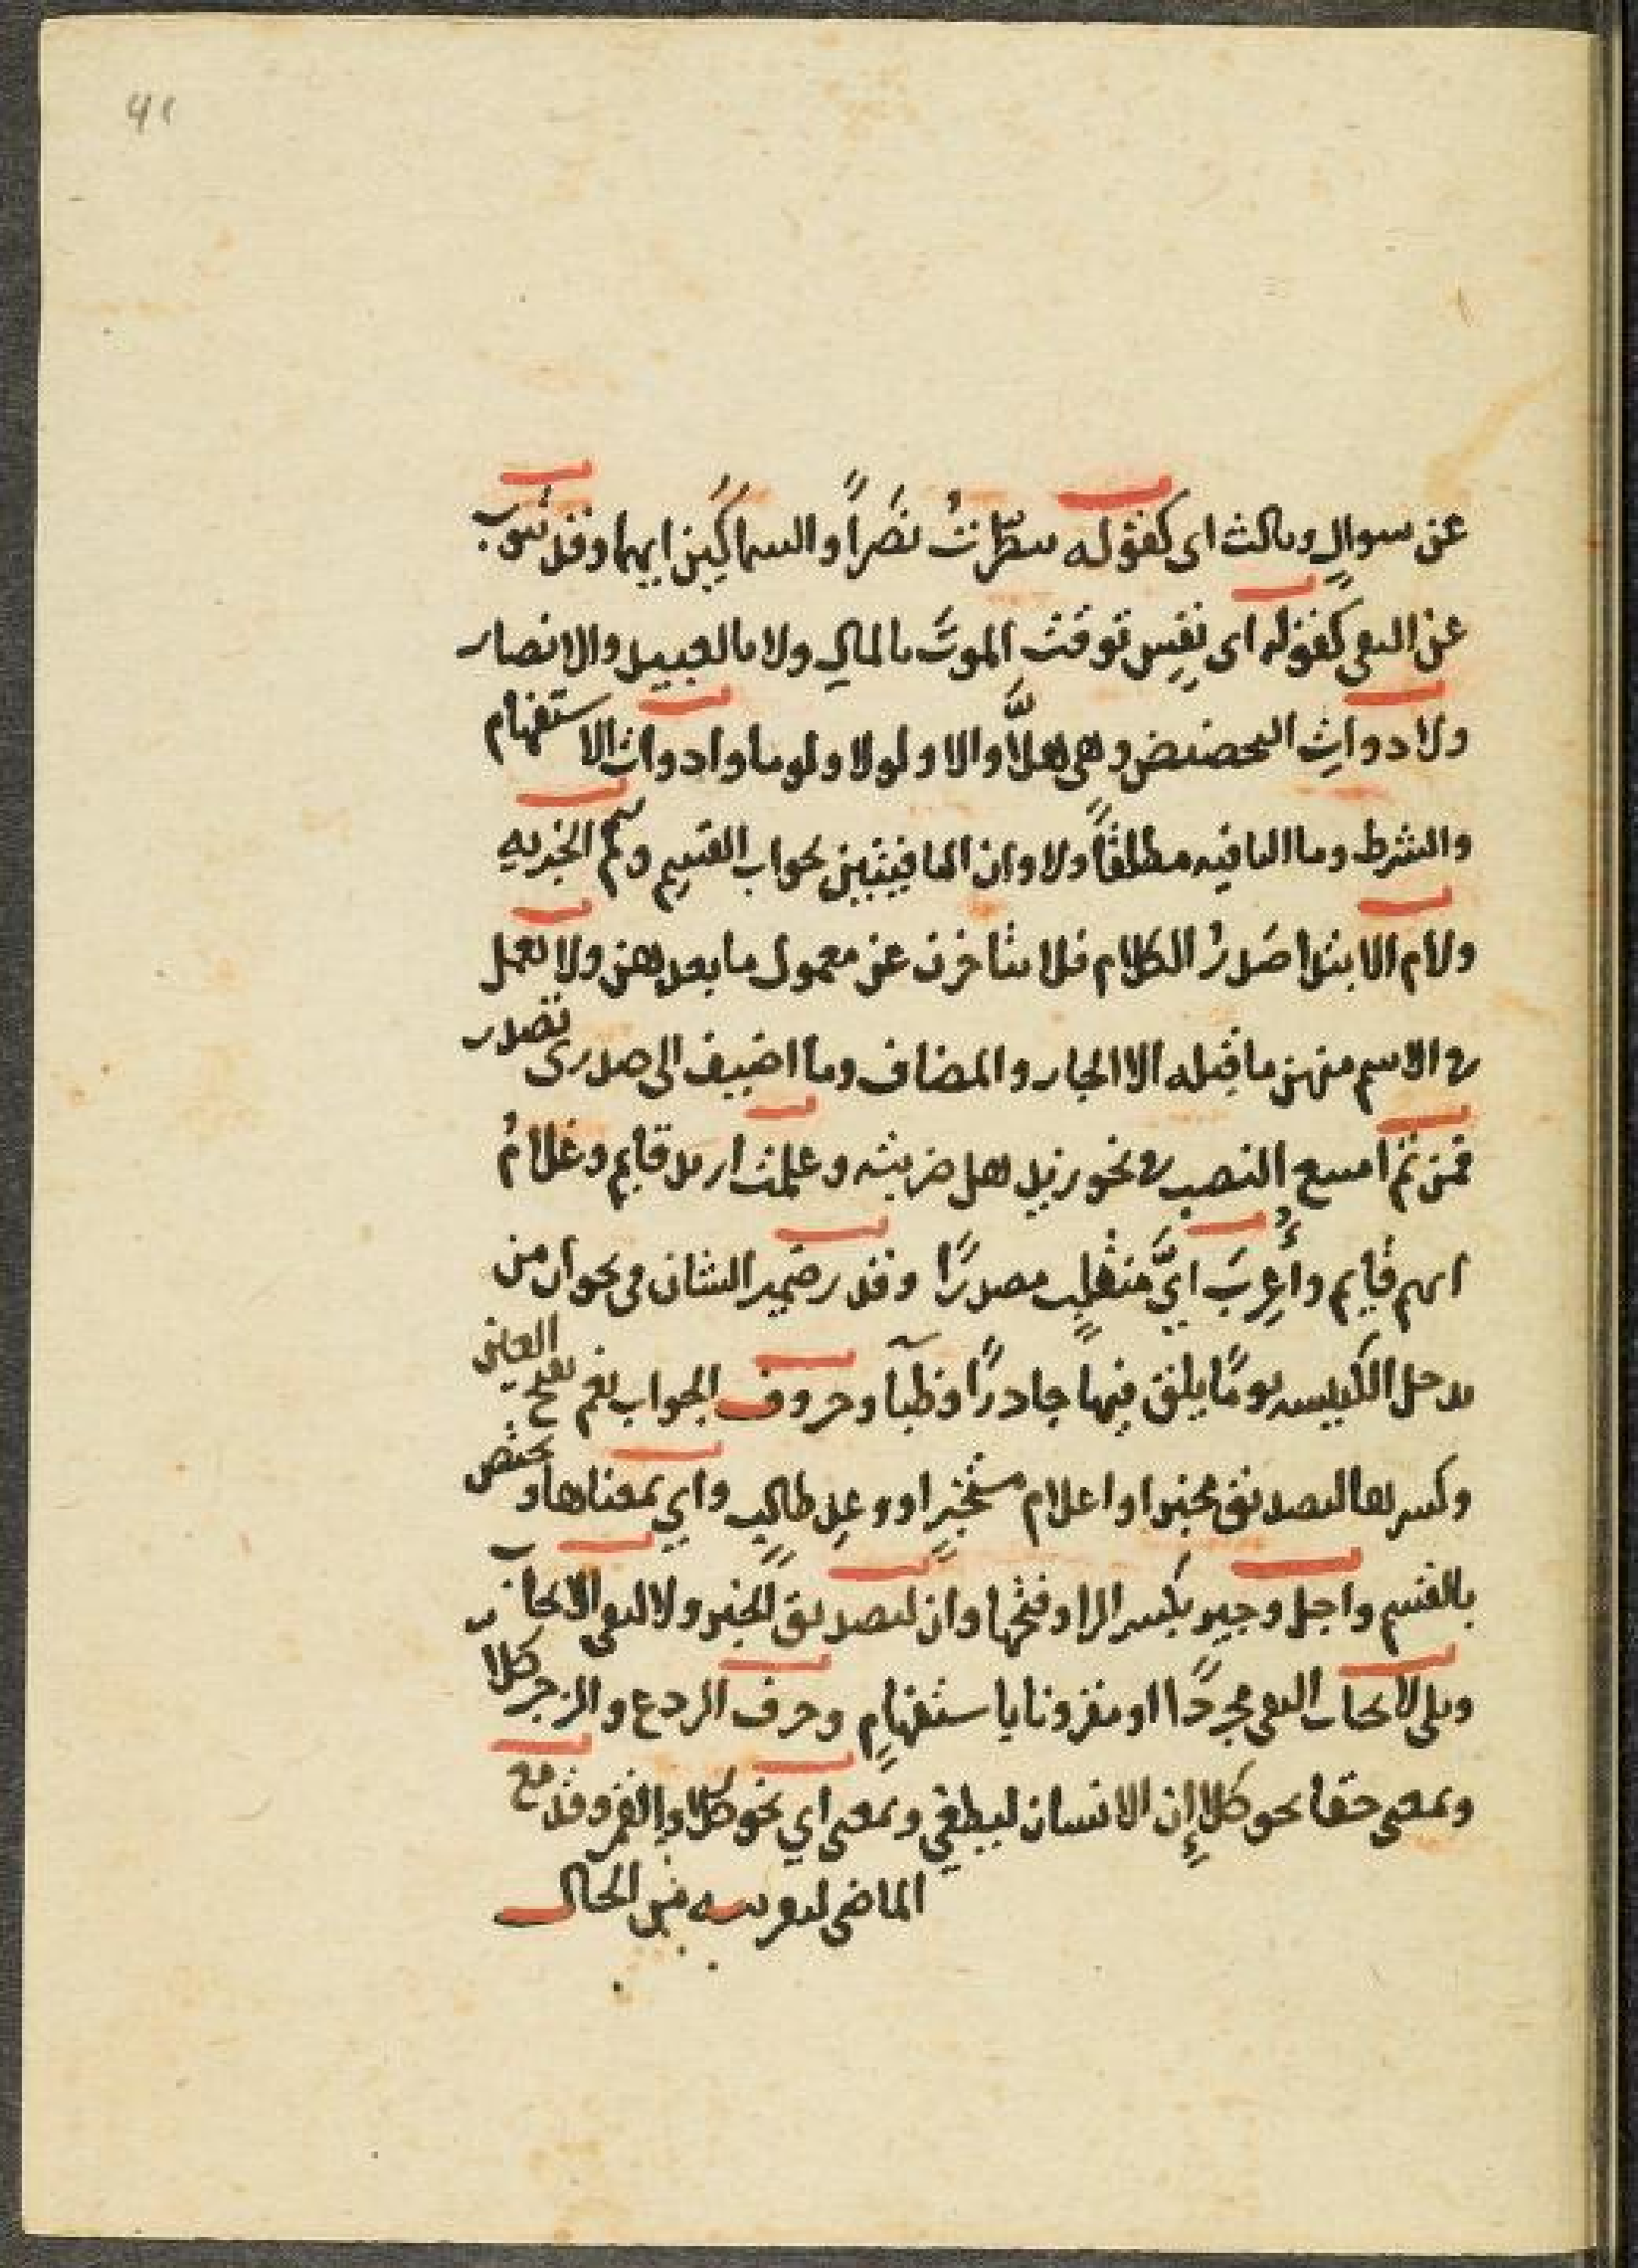 41
عن سوالٍ وثالث اى كقوله نظرتُ نصَراً والسماكَين ايهما وقد تنوب
عن النفى كقوله اى نفسٍ توقت الموتَ بالمال ولا بالعبيد والانصار
ولادواتِ التحضيض وهى هلاَّ والا ولولا ولوما وادوات الاستفهام
والشرط وما النافيه مطلقاً ولا وان النافيتين بجواب القسم وكم الخبريه
ولام الابتدا صَدرُ الكلام فلا يتاخرن عن معمول ما بعدهن ولا يعمل
فى الاسم منهن ما قبله الا الجار والمضاف وما اضيف الى صدرى تصدر
فمن ثم امتنع النصب فى نحو زيد هل ضربته وعلمت ازيد قايم وغلامُ
ايهم قايم واُعرِبَ ايَّ منقلبٍ مصدرًا وقدر ضمير الشان فى نحو ان من
يدخل الكنيسه يومًا يلق فيها جاذرًا وظبآ وحروف الجواب نعم بفتح العين
وكسرها لتصديق مخبر او اعلام مستخبرٍ او وعد طالبٍ واي بمعناها وتختص
بالقسم واجل وجير بكسر الرا وفتحها وان لتصديق الخبر ولا لنفى الايجاب
وبلى لايجاب النفى مجردًا او مقرونا باستفهامٍ وحرف الردع والزجر كلا
وبمعنى حقا نحو كلا إن الانسان ليطغى وبمعنى اي نحو كلا والقمر وقد مع
الماضى لتقريبه من الحال